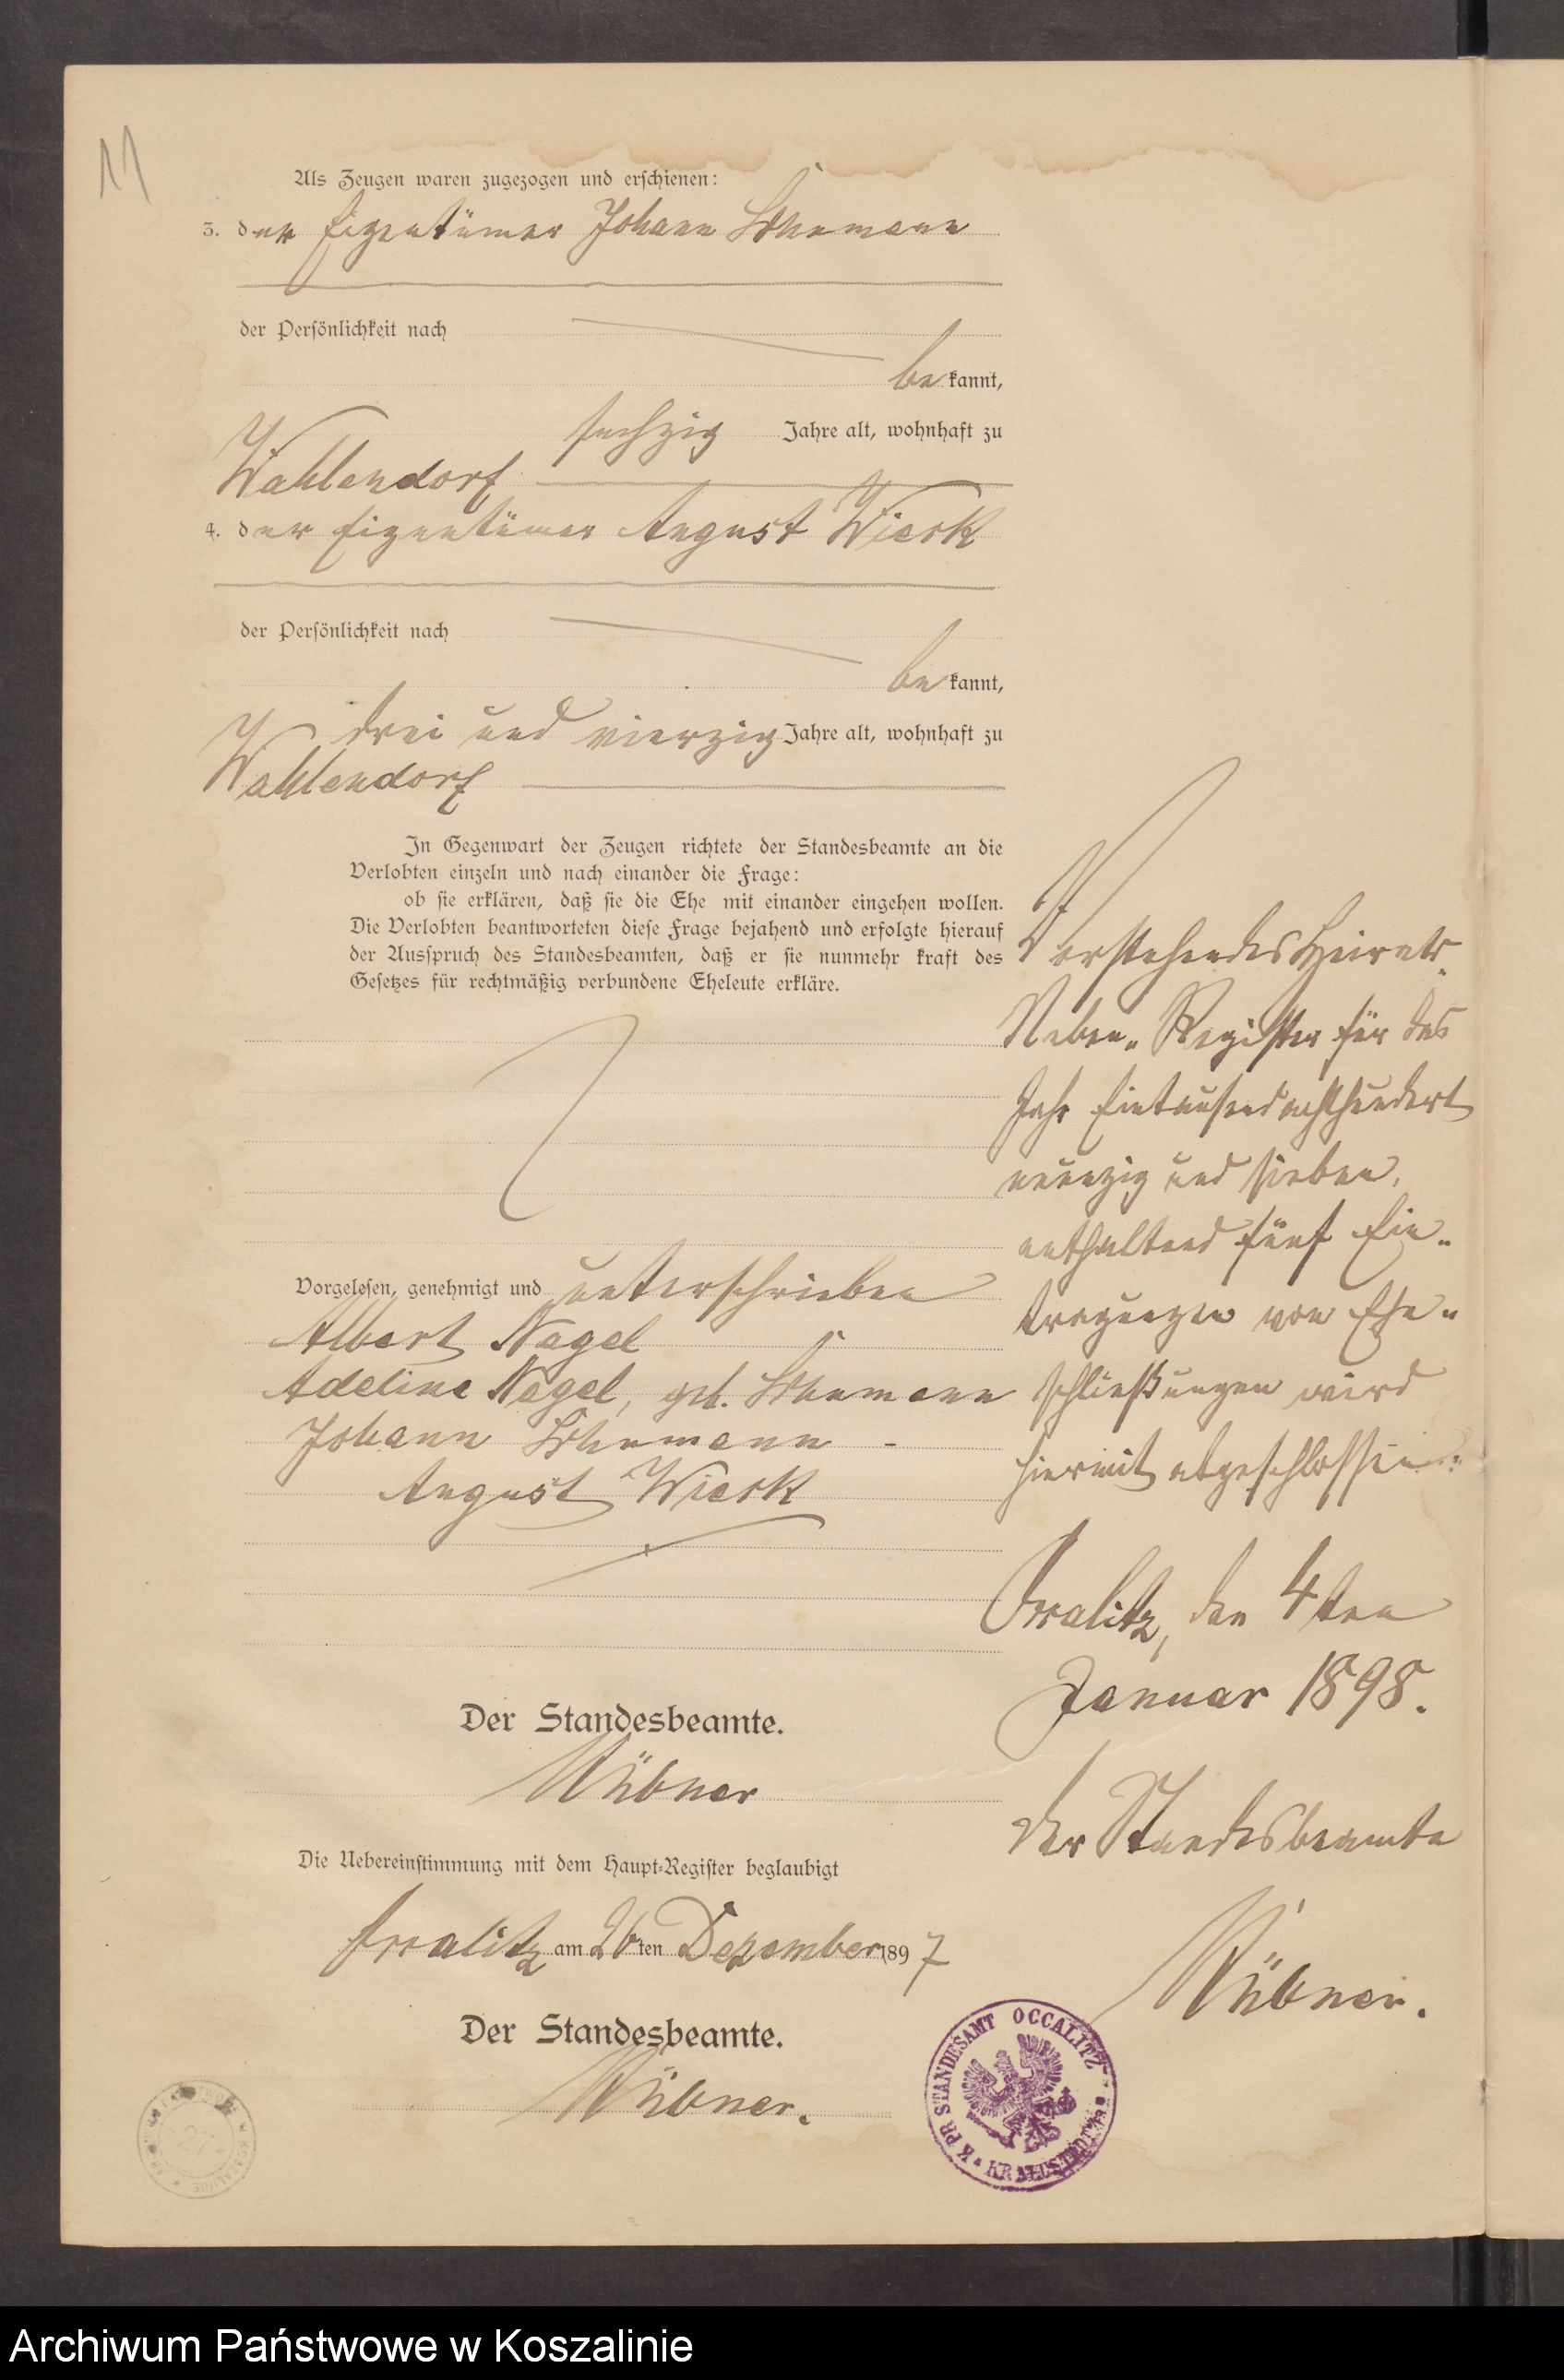 11
Als Zeugen waren zugezogen und erschienen:
3. der Eigentümer Johann Schumann
der Persönlichkeit nach
be kannt,
sechzig Jahre alt, wohnhaft zu
Wahlendorf
4. der Eigentümer August Wieck
der Persönlichkeit nach
be kannt,
drei und vierzig Jahre alt, wohnhaft zu
Wahlendorf
In Gegenwart der Zeugen richtete der Standesbeamte an die
Verlobten einzeln und nach einander die Frage:
ob sie erklären, daß sie die Ehe mit einander eingehen wollen.
Die Verlobten beantworteten diese Frage bejahend und erfolgte hierauf
der Ausspruch des Standesbeamten, daß er sie nunmehr kraft des
Gesetzes für rechtmäßig verbundene Eheleute erkläre.
Vorgelesen, genehmigt und unterschrieben
Albert Nagel
Adeline Nagel, geb. Schumann
Johann Schumann
August Wieck
Der Standesbeamte.
Hübner
Die Uebereinstimmung mit dem Haupt-Register beglaubigt
Occalitz am 26ten Dezember 1897
Der Standesbeamte.
Hübner.
Vorstehendes Heirats-
Neben-Register für das
Jahr Eintausendachthundert
neunzig und sieben,
enthaltend fünf Ein-
tragungen von Ehe-
schließungen wird
hiermit abgeschlossen.
Occalitz, den 4ten
Januar 1898.
Der Standesbeamte
Hübner.
K. PR. STANDESAMT OCCALITZ
27
Archiwum Państwowe w Koszalinie